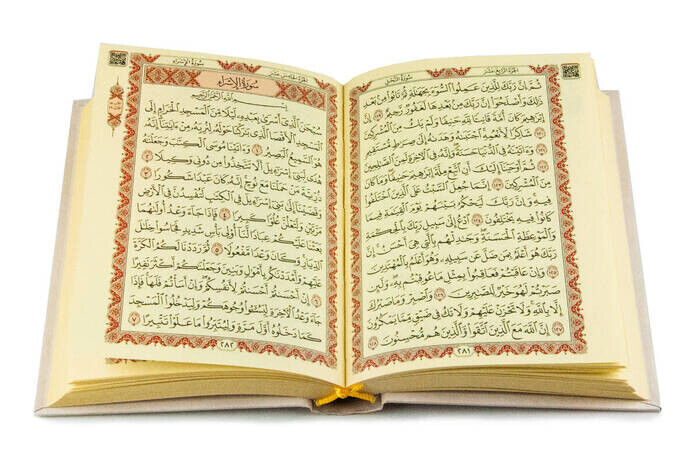 الجزء الرابع عشر
سورة النحل
ثُمَّ إِنَّ رَبَّكَ لِلَّذِينَ عَمِلُوا۟ ٱلسُّوٓءَ بِجَهَـٰلَةٍ ثُمَّ تَابُوا۟ مِنۢ بَعْدِ
ذَٰلِكَ وَأَصْلَحُوٓا۟ إِنَّ رَبَّكَ مِنۢ بَعْدِهَا لَغَفُورٌ رَّحِيمٌ ١١٩ إِنَّ
إِبْرَٰهِيمَ كَانَ أُمَّةً قَانِتًا لِّلَّهِ حَنِيفًا وَلَمْ يَكُ مِنَ ٱلْمُشْرِكِينَ
١٢٠ شَاكِرًا لِّأَنْعُمِهِ ٱجْتَبَىٰهُ وَهَدَىٰهُ إِلَىٰ صِرَٰطٍ مُّسْتَقِيمٍ
١٢١ وَءَاتَيْنَـٰهُ فِى ٱلدُّنْيَا حَسَنَةً وَإِنَّهُۥ فِى ٱلْـَٔاخِرَةِ لَمِنَ ٱلصَّـٰلِحِينَ
١٢٢ ثُمَّ أَوْحَيْنَآ إِلَيْكَ أَنِ ٱتَّبِعْ مِلَّةَ إِبْرَٰهِيمَ حَنِيفًا وَمَا كَانَ
مِنَ ٱلْمُشْرِكِينَ ١٢٣ إِنَّمَا جُعِلَ ٱلسَّبْتُ عَلَى ٱلَّذِينَ ٱخْتَلَفُوا۟
فِيهِ وَإِنَّ رَبَّكَ لَيَحْكُمُ بَيْنَهُمْ يَوْمَ ٱلْقِيَـٰمَةِ فِيمَا
كَانُوا۟ فِيهِ يَخْتَلِفُونَ ١٢٤ ٱدْعُ إِلَىٰ سَبِيلِ رَبِّكَ بِٱلْحِكْمَةِ
وَٱلْمَوْعِظَةِ ٱلْحَسَنَةِ وَجَـٰدِلْهُم بِٱلَّتِى هِىَ أَحْسَنُ إِنَّ
رَبَّكَ هُوَ أَعْلَمُ بِمَن ضَلَّ عَن سَبِيلِهِۦ وَهُوَ أَعْلَمُ بِٱلْمُهْتَدِينَ
١٢٥ وَإِنْ عَاقَبْتُمْ فَعَاقِبُوا۟ بِمِثْلِ مَا عُوقِبْتُم بِهِۦ وَلَئِن
صَبَرْتُمْ لَهُوَ خَيْرٌ لِّلصَّـٰبِرِينَ ١٢٦ وَٱصْبِرْ وَمَا صَبْرُكَ
إِلَّا بِٱللَّهِ وَلَا تَحْزَنْ عَلَيْهِمْ وَلَا تَكُ فِى ضَيْقٍ مِّمَّا يَمْكُرُونَ
١٢٧ إِنَّ ٱللَّهَ مَعَ ٱلَّذِينَ ٱتَّقَوا۟ وَّٱلَّذِينَ هُم مُّحْسِنُونَ ١٢٨
٢٨١
الجزء الخامس عشر
سورة الإسراء
سُورَةُ الإِسْرَاءِ
بِسْمِ ٱللَّهِ ٱلرَّحْمَـٰنِ ٱلرَّحِيمِ
سُبْحَـٰنَ ٱلَّذِىٓ أَسْرَىٰ بِعَبْدِهِۦ لَيْلًا مِّنَ ٱلْمَسْجِدِ ٱلْحَرَامِ إِلَى
ٱلْمَسْجِدِ ٱلْأَقْصَا ٱلَّذِى بَـٰرَكْنَا حَوْلَهُۥ لِنُرِيَهُۥ مِنْ ءَايَـٰتِنَآ إِنَّهُۥ
هُوَ ٱلسَّمِيعُ ٱلْبَصِيرُ ١ وَءَاتَيْنَا مُوسَى ٱلْكِتَـٰبَ وَجَعَلْنَـٰهُ
هُدًى لِّبَنِىٓ إِسْرَٰٓءِيلَ أَلَّا تَتَّخِذُوا۟ مِن دُونِى وَكِيلًا ٢
ذُرِّيَّةَ مَنْ حَمَلْنَا مَعَ نُوحٍ إِنَّهُۥ كَانَ عَبْدًا شَكُورًا ٣
وَقَضَيْنَآ إِلَىٰ بَنِىٓ إِسْرَٰٓءِيلَ فِى ٱلْكِتَـٰبِ لَتُفْسِدُنَّ فِى ٱلْأَرْضِ
مَرَّتَيْنِ وَلَتَعْلُنَّ عُلُوًّا كَبِيرًا ٤ فَإِذَا جَآءَ وَعْدُ أُولَىٰهُمَا
بَعَثْنَا عَلَيْكُمْ عِبَادًا لَّنَآ أُو۟لِى بَأْسٍ شَدِيدٍ فَجَاسُوا۟ خِلَـٰلَ
ٱلدِّيَارِ وَكَانَ وَعْدًا مَّفْعُولًا ٥ ثُمَّ رَدَدْنَا لَكُمُ ٱلْكَرَّةَ
عَلَيْهِمْ وَأَمْدَدْنَـٰكُم بِأَمْوَٰلٍ وَبَنِينَ وَجَعَلْنَـٰكُمْ أَكْثَرَ نَفِيرًا
٦ إِنْ أَحْسَنتُمْ أَحْسَنتُمْ لِأَنفُسِكُمْ وَإِنْ أَسَأْتُمْ فَلَهَا فَإِذَا
جَآءَ وَعْدُ ٱلْـَٔاخِرَةِ لِيَسُـۥٓـُٔوا۟ وُجُوهَكُمْ وَلِيَدْخُلُوا۟ ٱلْمَسْجِدَ
كَمَا دَخَلُوهُ أَوَّلَ مَرَّةٍ وَلِيُتَبِّرُوا۟ مَا عَلَوْا۟ تَتْبِيرًا ٧
٢٨٢